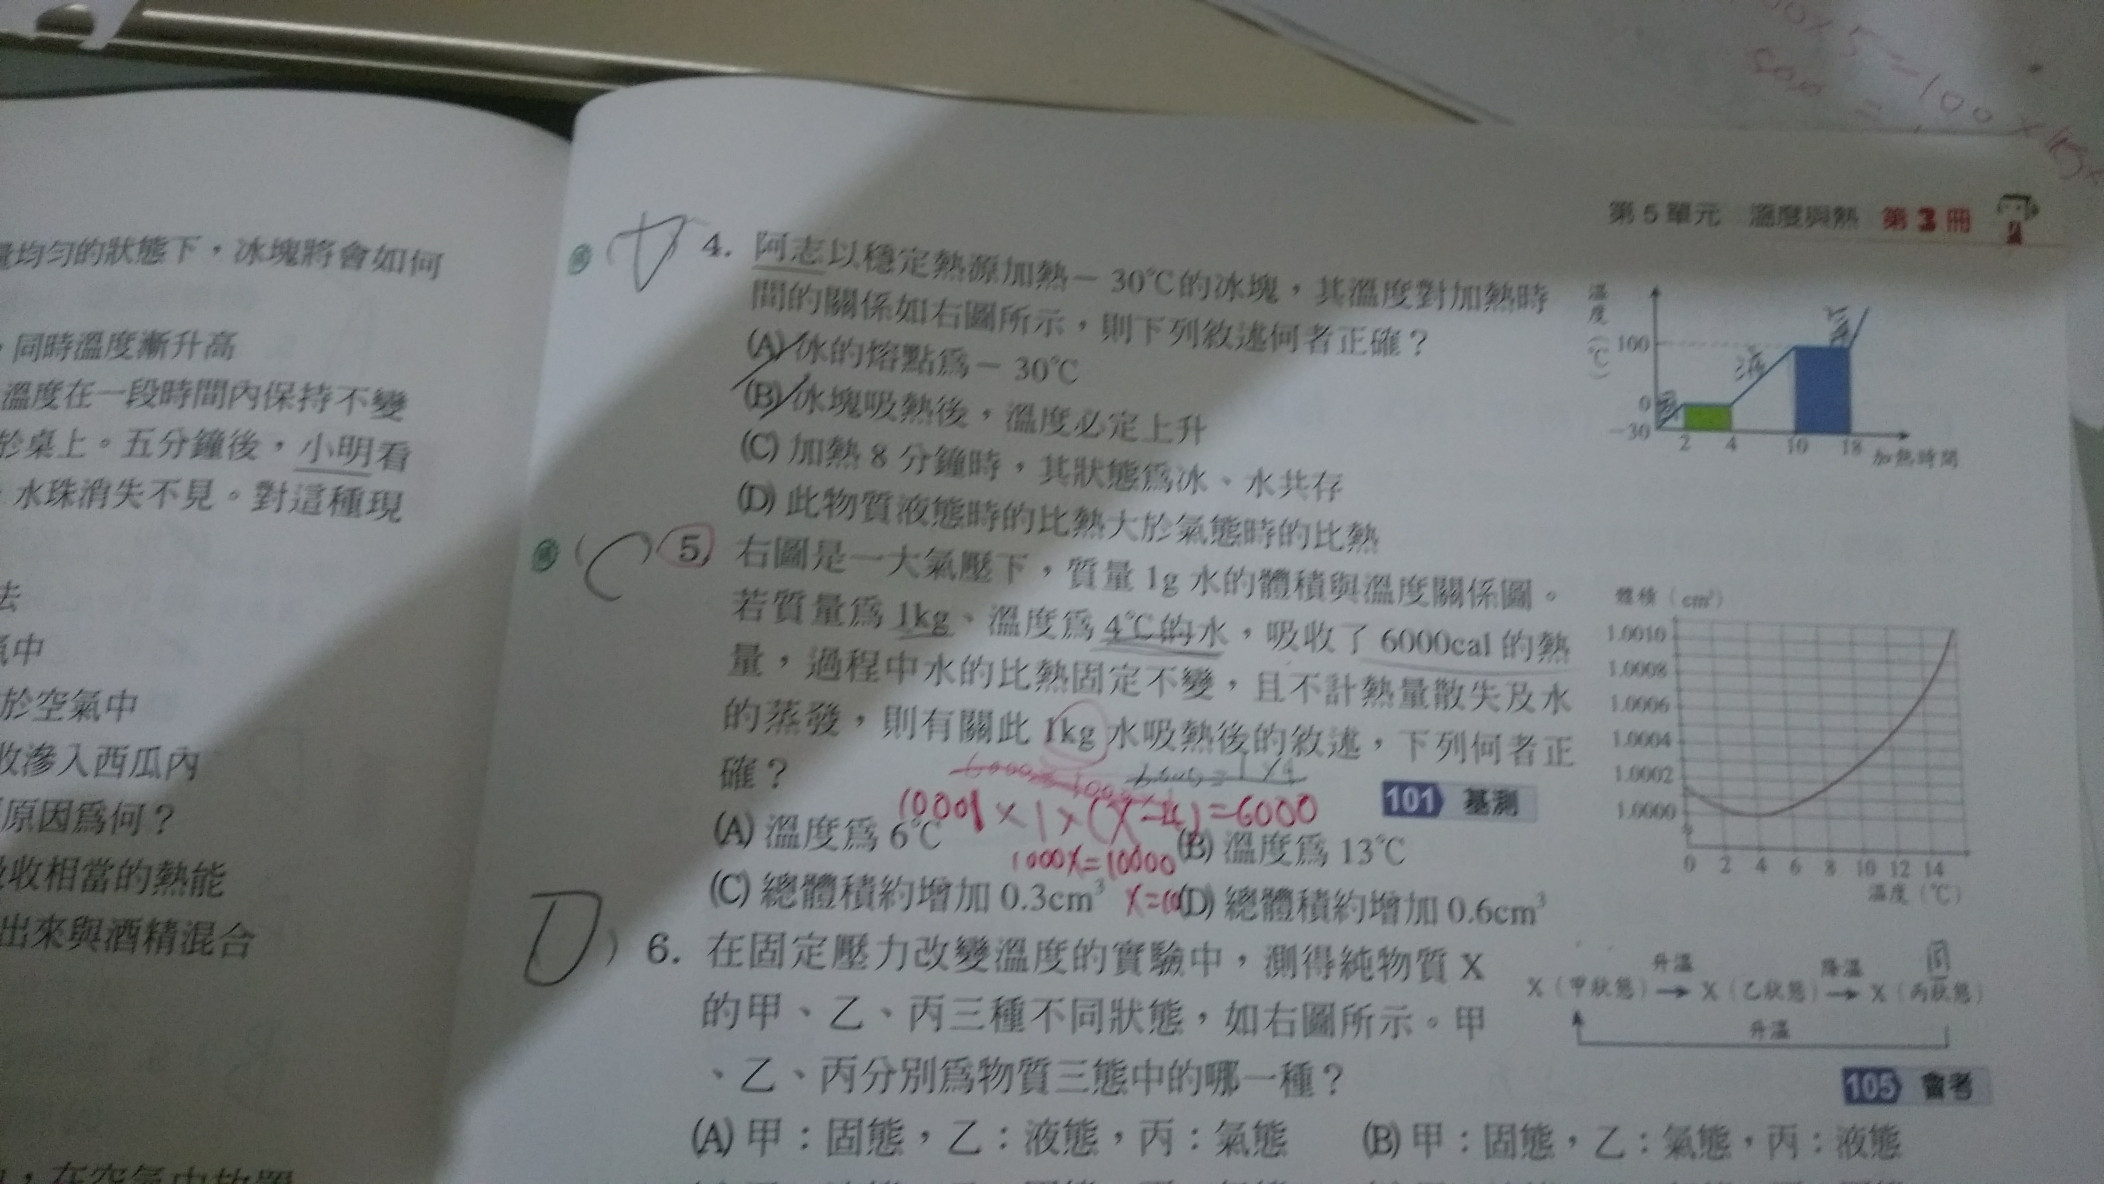 00×5=100×
第5單元 溫度與熱 第3冊
量均勻的狀態下，冰塊將會如何
，同時溫度漸升高
溫度在一段時間內保持不變
於桌上。五分鐘後，小明看
水珠消失不見。對這種現
法
氣中
於空氣中
收滲入西瓜內
原因為何？
收相當的熱能
出來與酒精混合
，在空氣中放置
D
4. 阿志以穩定熱源加熱－30℃的冰塊，其溫度對加熱時
間的關係如右圖所示，則下列敘述何者正確？
(A) 冰的熔點為－30℃
(B) 冰塊吸熱後，溫度必定上升
(C) 加熱 8 分鐘時，其狀態為冰、水共存
(D) 此物質液態時的比熱大於氣態時的比熱
溫度(℃)
100
0
-30
固
液
2 4 10 18 加熱時間
( C ) 5. 右圖是一大氣壓下，質量 1g 水的體積與溫度關係圖。
若質量為 1kg、溫度為 4℃的水，吸收了 6000cal 的熱
量，過程中水的比熱固定不變，且不計熱量散失及水
的蒸發，則有關此 1kg 水吸熱後的敘述，下列何者正
確？
101 基測
1000×1×(X-4)=6000
(A) 溫度為 6℃ (B) 溫度為 13℃
1000X=10000
(C) 總體積約增加 0.3cm³ X=10 (D) 總體積約增加 0.6cm³
體積（cm³）
1.0010
1.0008
1.0006
1.0004
1.0002
1.0000
0 2 4 6 8 10 12 14
溫度（℃）
D ) 6. 在固定壓力改變溫度的實驗中，測得純物質 X
的甲、乙、丙三種不同狀態，如右圖所示。甲
、乙、丙分別為物質三態中的哪一種？
固
升溫 降溫
X（甲狀態）→ X（乙狀態）→ X（丙狀態）
升溫
105 會考
(A) 甲：固態，乙：液態，丙：氣態 (B) 甲：固態，乙：氣態，丙：液態